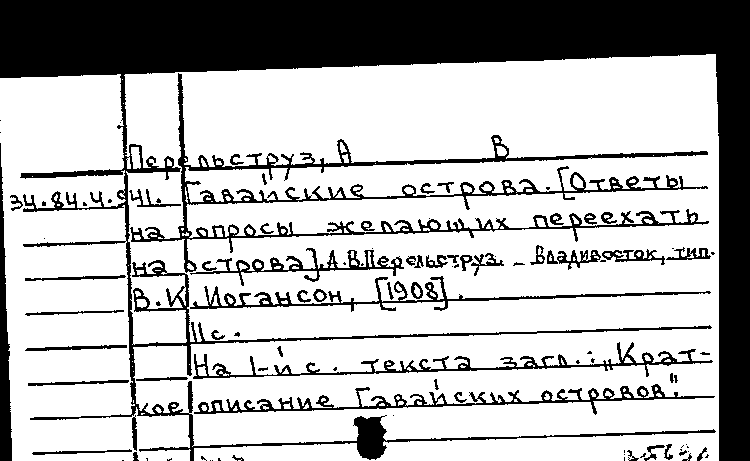 Перельструз, А В
34.84.4.941. Гавайские острова. [Ответы
на вопросы желающих переехать
на острова]. А.В.Перельструз. – Владивосток, тип.
В.К.Иогансон, [1908].
11с.
На 1-й с. текста загл.: „Крат-
кое описание Гавайских островов".